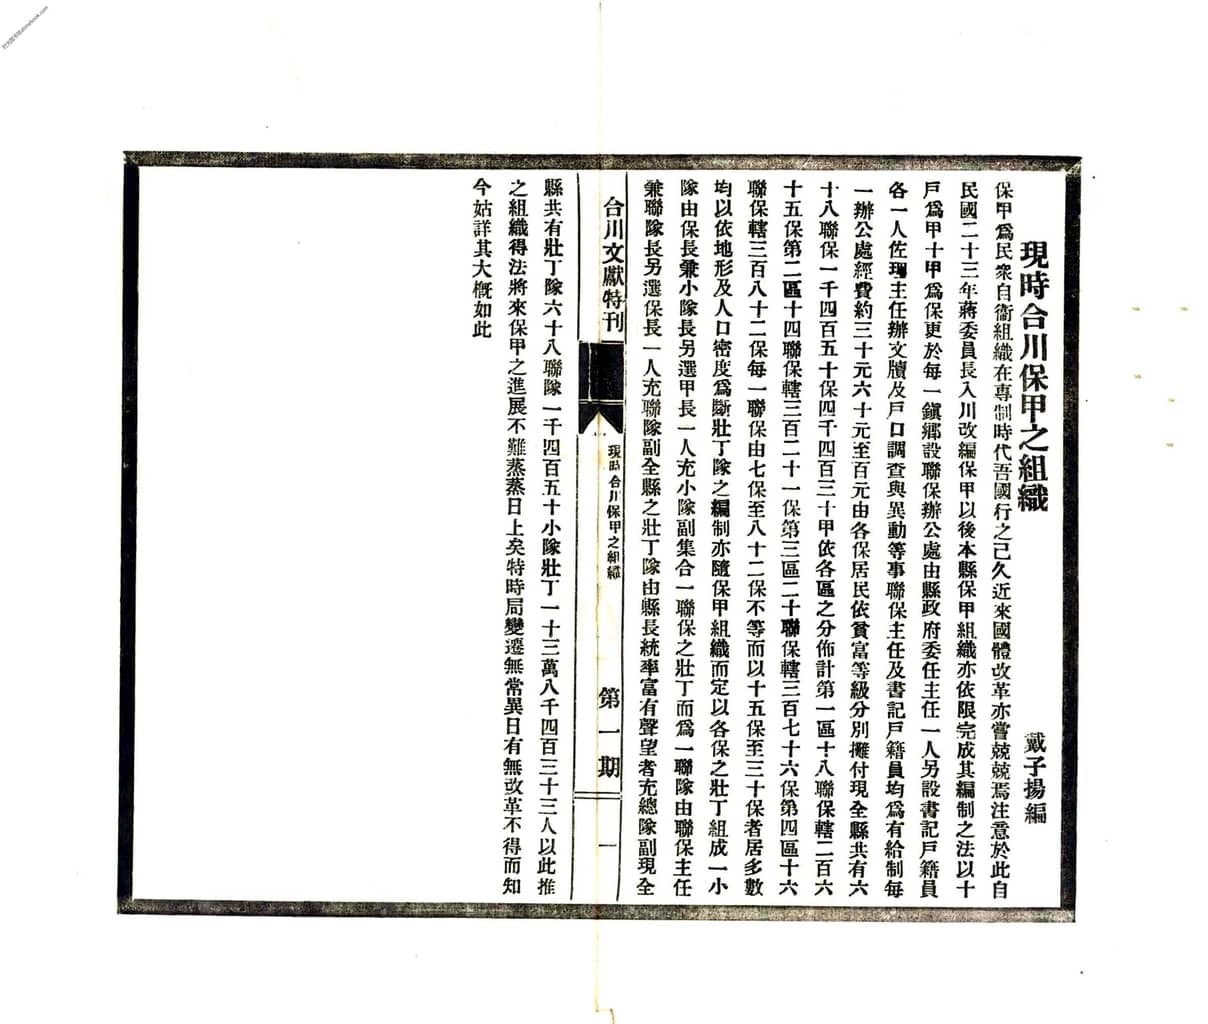 現時合川保甲之組織
戴子揚編
保甲爲民衆自衞組織在專制時代吾國行之已久近來國體改革亦嘗兢兢焉注意於此自
民國二十三年蔣委員長入川改編保甲以後本縣保甲組織亦依限完成其編制之法以十
戶爲甲十甲爲保更於每一鎭鄉設聯保辦公處由縣政府委任主任一人另設書記戶籍員
各一人佐理主任辦文牘及戶口調查與異動等事聯保主任及書記戶籍員均爲有給制每
一辦公處經費約三十元六十元至百元由各保居民依貧富等級分別攤付現全縣共有六
十八聯保一千四百五十保四千四百三十甲依各區之分佈計第一區十八聯保轄二百六
十五保第二區十四聯保轄三百二十一保第三區二十聯保轄三百七十六保第四區十六
聯保轄三百八十二保每一聯保由七保至八十二保不等而以十五保至三十保者居多數
均以依地形及人口密度爲斷壯丁隊之編制亦隨保甲組織而定以各保之壯丁組成一小
隊由保長兼小隊長另選甲長一人充小隊副集合一聯保之壯丁而爲一聯隊由聯保主任
兼聯隊長另選保長一人充聯隊副全縣之壯丁隊由縣長統率富有聲望者充總隊副現全
合川文獻特刊
現時合川保甲之組織
第一期
一
縣共有壯丁隊六十八聯隊一千四百五十小隊壯丁一十三萬八千四百三十三人以此推
之組織得法將來保甲之進展不難蒸蒸日上矣特時局變遷無常異日有無改革不得而知
今姑詳其大槪如此